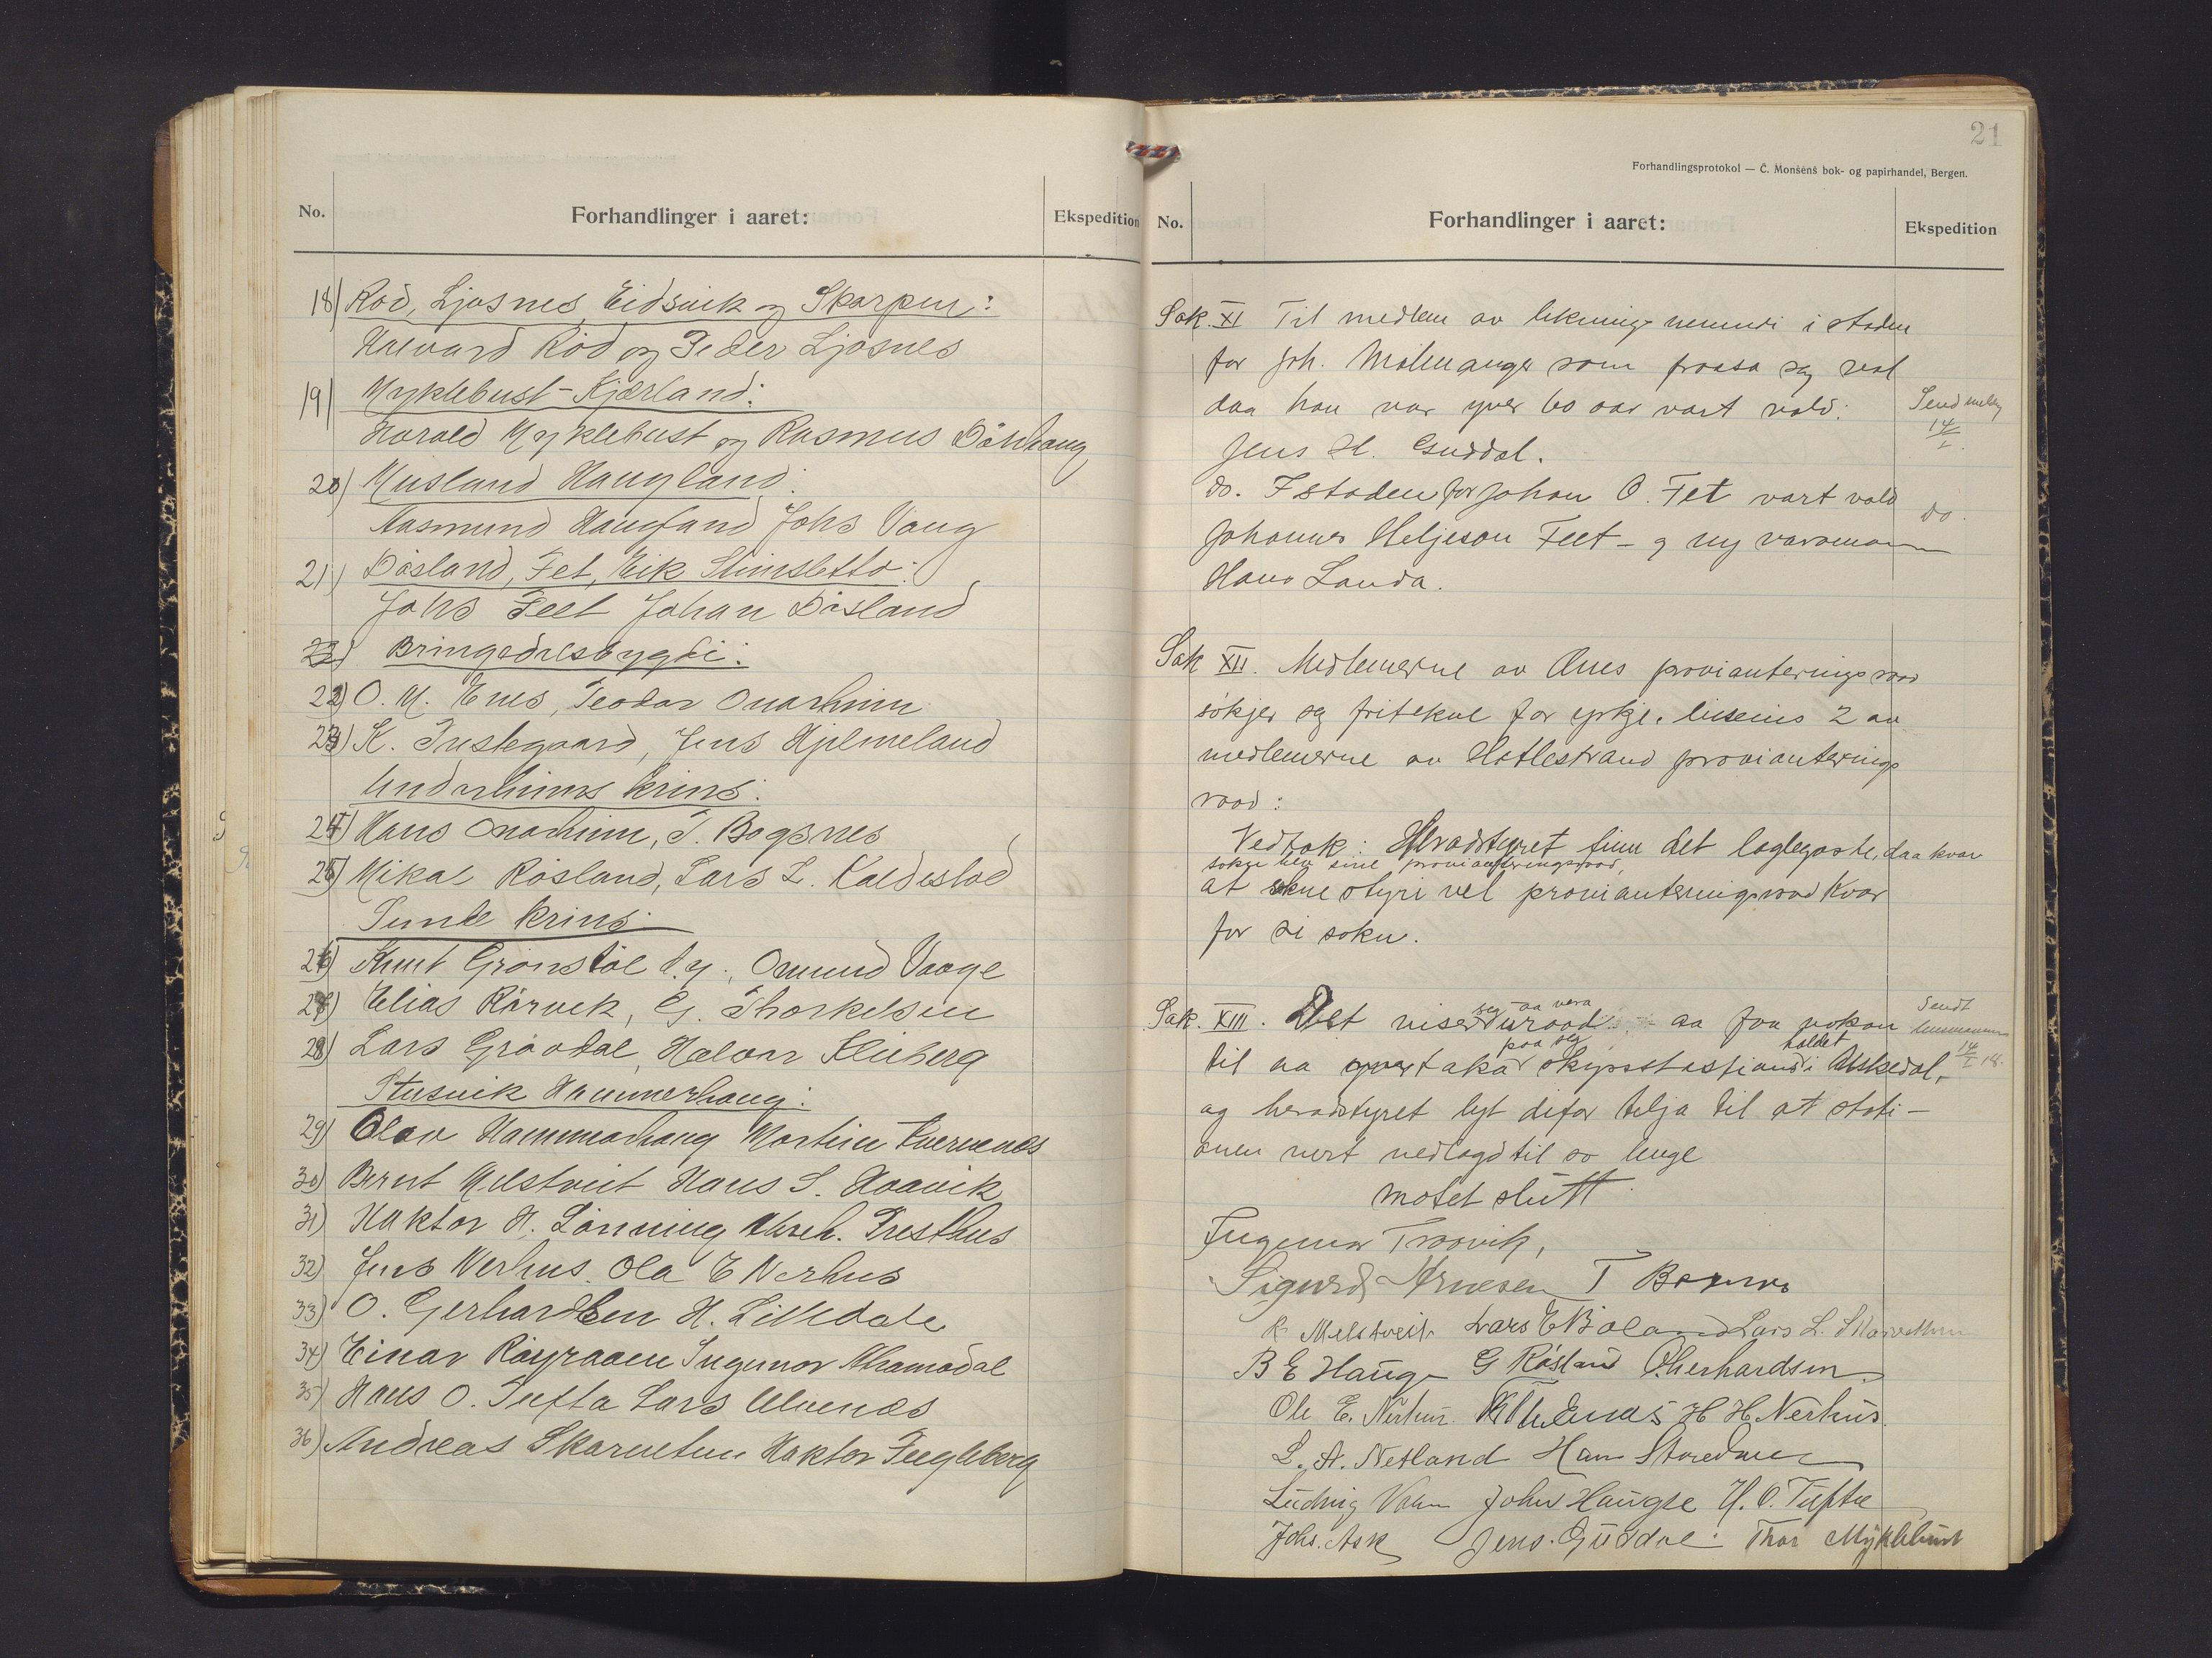 No.
Forhandlinger i aaret:
Ekspedition
18) Röd, Ljosnes, Eidsvik og Skarpen:
Halvard Röd og Peder Ljosnes
19) Myklebust-Kjærland:
Harald Myklebust og Rasmus Dönhaug
20) Musland Haugland.
Aasmund Haugland Johs Vaug
21) Dösland, Fet, Eik
Johs Feet Johan Dösland
Bringedalsbygdi:
22) O. M. Enes, Teodor Onarheim
23) K. Tustegaard, Jens Hjelmeland
Undarheims krins:
24) Hans Onarheim, T. Bogsnes
25) Mikal Rösland, Lars L. Kaldestad
Sunde krins:
26) Knut Grönstöl d.y., Omund Vaage
27) Elias Rörvik, G. Thorkelsen
28) Lars Graadal, Halvar Kleiberg
Stusvik Hammerhaug:
29) Olav Hammerhaug Martin Kvernenes
30) Bernt Melstveit Hans S. Haavik
31) Haktor H. Lönning Presthus
32) Jens Nerhus. Ola E Nerhus
33) O. Gerhardsen H. Lilledale
34) Einar Röyraaen Ingemor
35) Hans O. Tufta Lars Ulvenes
36) Andreas Skarvetun Haktor Fugleberg
21
Forhandlingsprotokol — C. Monsens bok- og papirhandel, Bergen.
No.
Forhandlinger i aaret:
Ekspedition
Sak. XI Til medlem av likningsnemndi i staden
for Joh. Malmanger som fraasa seg val
daa han var yver 60 aar vart vald:
Send
14
Jens H. Guddal.
do. I staden for Johan O. Fet vart vald
do.
Johannes Heljeson Feet - og ny varamann
Hans Landa.
Sak XII. Medlemerne av Ænes provianteringsraad
sökjer seg fritekne for yrkje. likeeins 2 av
medlemerne av Hatlestrand provianterings
raad:
Vedtak: Heradstyret finn det laglegaste, daa kvar
sokn hev sine provianteringsraad,
at soknestyri vel provianteringsraad kvar
for si sokn.
Sak. XIII. Det viser seg aa vera uraad aa faa nokon
Sendt
lensmannen
til aa yvertaka paa seg skysstasjonshaldet i Uskedal,
14 18.
og heradstyret lyt difor telja til at stati-
onen vert nedlagd til so lenge
motet slutt.
Ingemar Traavik,
Sigurd Arnesen T Bogsnes
K Melstveit Lars E Böland Lars L. Skarvetun
B E Hauge G Rösland O. Gerhardsen.
Ole E. Nerhus. Enæs H H. Nerhus.
L. A. Netland Hans
Ludvig Valen John Haugse H. O. Tufte
Johs. Ask Jens. Guddal. Thor Myklebust